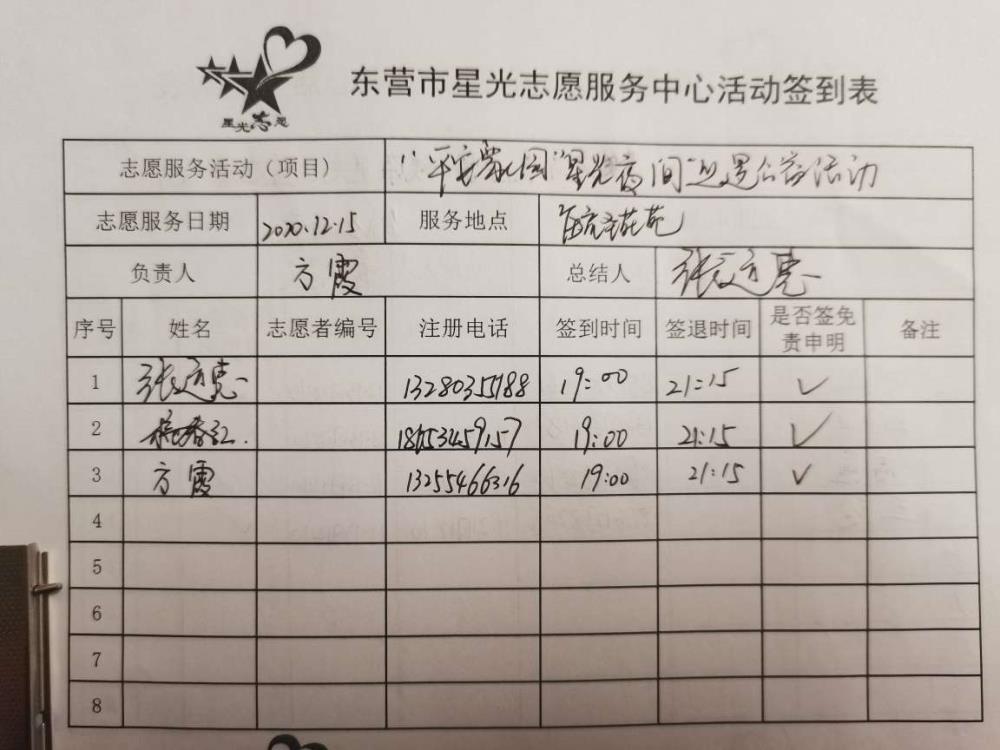 星光志愿
东营市星光志愿服务中心活动签到表
志愿服务活动（项目） "平安家园"星光夜间巡逻公益活动
志愿服务日期 2020.12.15 服务地点
负责人 方霞 总结人 张道惠
序号 姓名 志愿者编号 注册电话 签到时间 签退时间 是否签免责申明 备注
1 张道惠 13280355188 19:00 21:15 ✓
2 19:00 21:15 ✓
3 方霞 13255466316 19:00 21:15 ✓
4
5
6
7
8